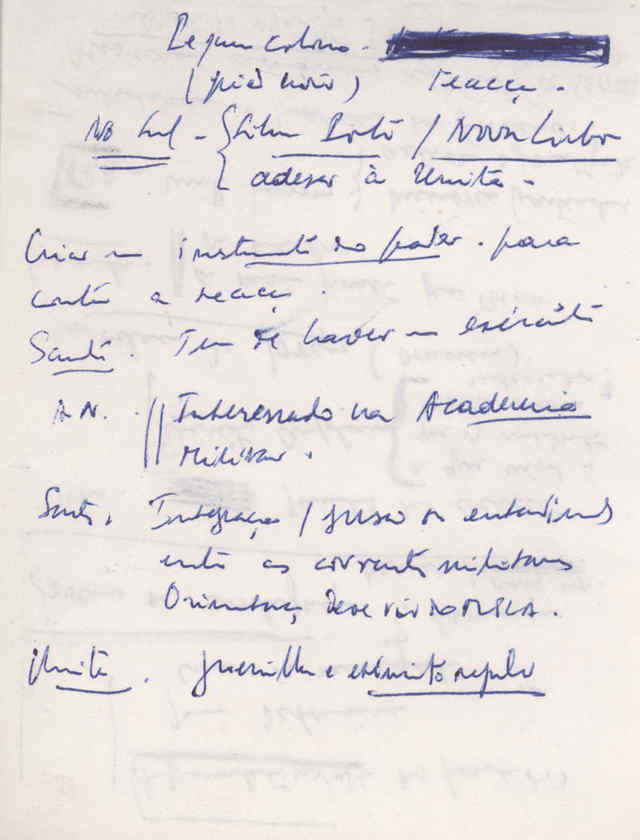 Pequeno colono -
(pied noir) reacç.
No Sul - Silva Porto / Nova Lisboa
adesão à Unita -
Criar um instrumento do poder. para
conter a reacç.
Santos. Tem de haver um exército
A. N. Interessado na Academia
Militar.
Santos. Integração / fusão ou entendimento
entre as correntes militares
Orientaç. deve vir do MPLA.
Unita. guerrilha e exército regular